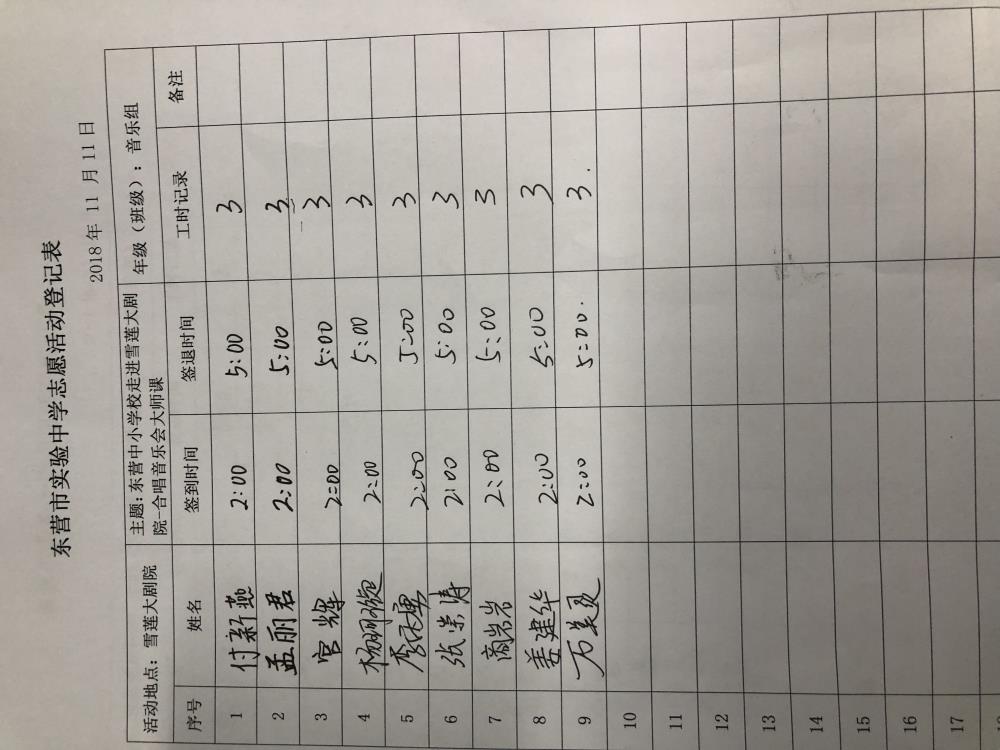 东营市实验中学志愿活动登记表
2018 年 11 月 11 日
活动地点：雪莲大剧院 主题：东营中小学校走进雪莲大剧院-合唱音乐会大师课 年级（班级）：音乐组
序号 姓名 签到时间 签退时间 工时记录 备注
1 付新燕 2:00 5:00 3
2 孟丽君 2:00 5:00 3
3 宫辉 2:00 5:00 3
4 2:00 5:00 3
5 2:00 5:00 3
6 张荣涛 2:00 5:00 3
7 商岩岩 2:00 5:00 3
8 姜建华 2:00 5:00 3
9 2:00 5:00. 3.
10
11
12
13
14
15
16
17